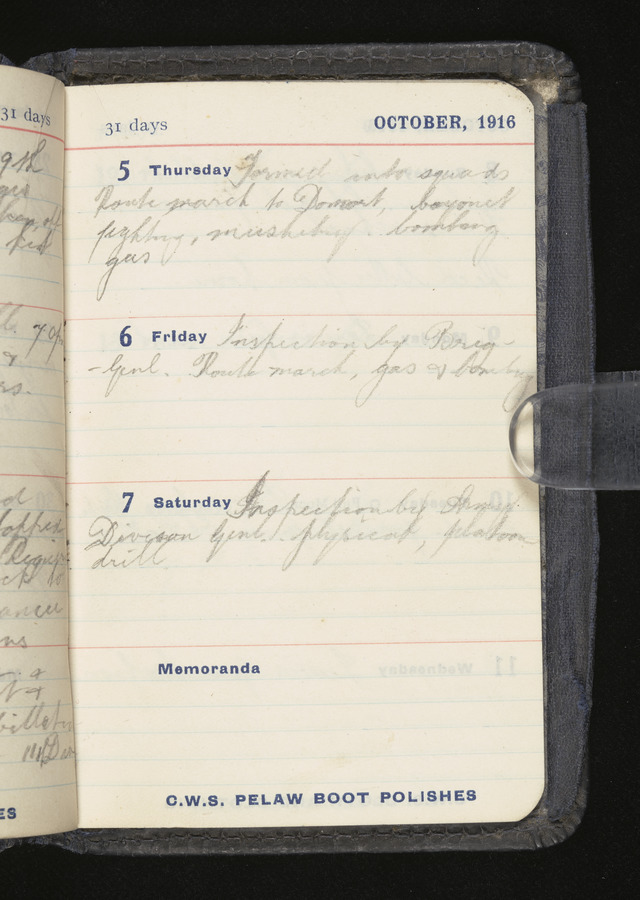 31 days
31 days OCTOBER, 1916
5 Thursday Formed into squads
Route march to Domart, bayonet
fighting, musketry. bombing
gas
6 Friday Inspection by
- Genl. Route march, gas & bombing
7 Saturday Inspection by Army
Divison Genl. physical, platoon
drill
Memoranda
C.W.S. PELAW BOOT POLISHES